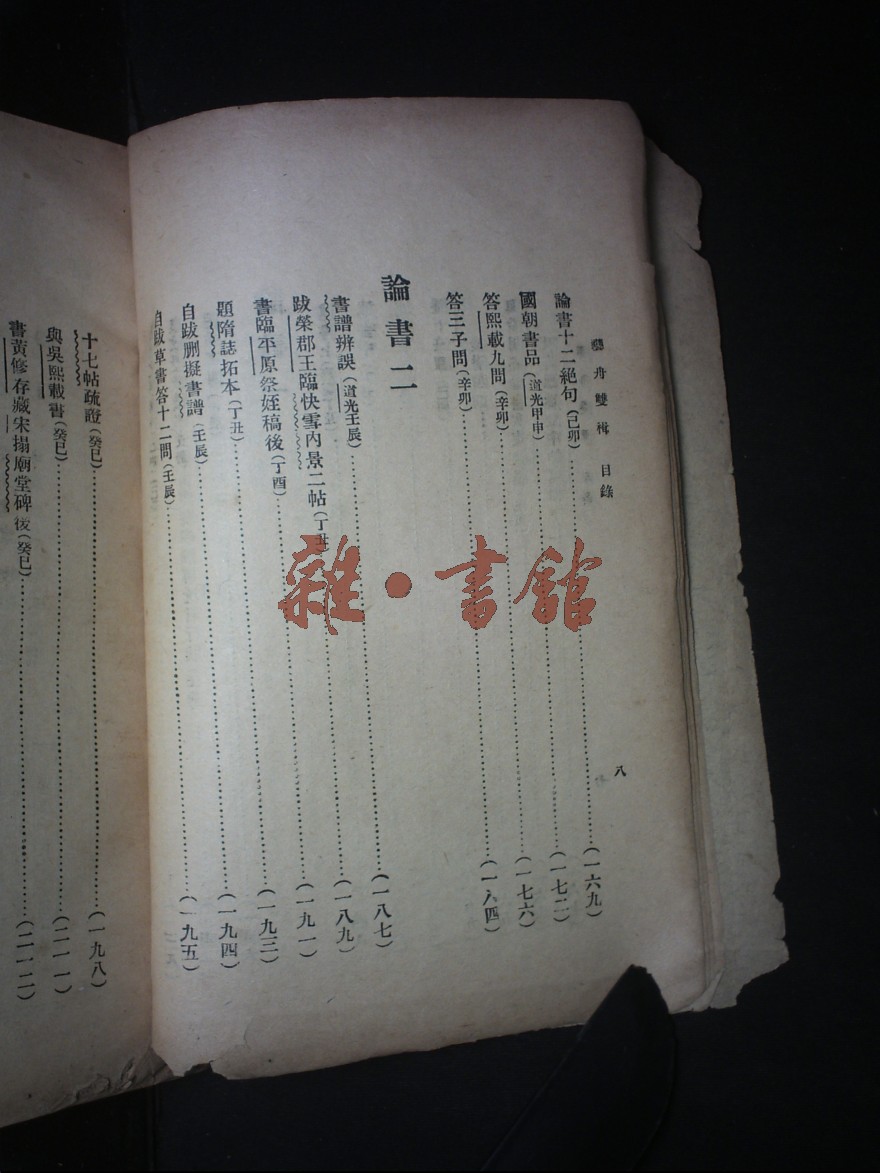 藝舟雙楫 目錄
八
論書十二絕句(己卯)……(一六九)
國朝書品(道光甲申)……(一七二)
答熙載九問(辛卯)……(一七六)
答三子問(辛卯)……(一八四)
論書二
書譜辨誤(道光壬辰)……(一八七)
跋榮郡王臨快雪內景二帖(丁丑)……(一八九)
書臨平原祭姪稿後(丁酉)……(一九一)
題隋誌拓本(丁丑)……(一九三)
自跋刪擬書譜(壬辰)……(一九四)
自跋草書答十二問(壬辰)……(一九五)
十七帖疏證(癸巳)……(一九八)
與吳熙載書(癸巳)……(二一一)
書黃修存藏宋搨廟堂碑後(癸巳)……(二一二)
雜·書館